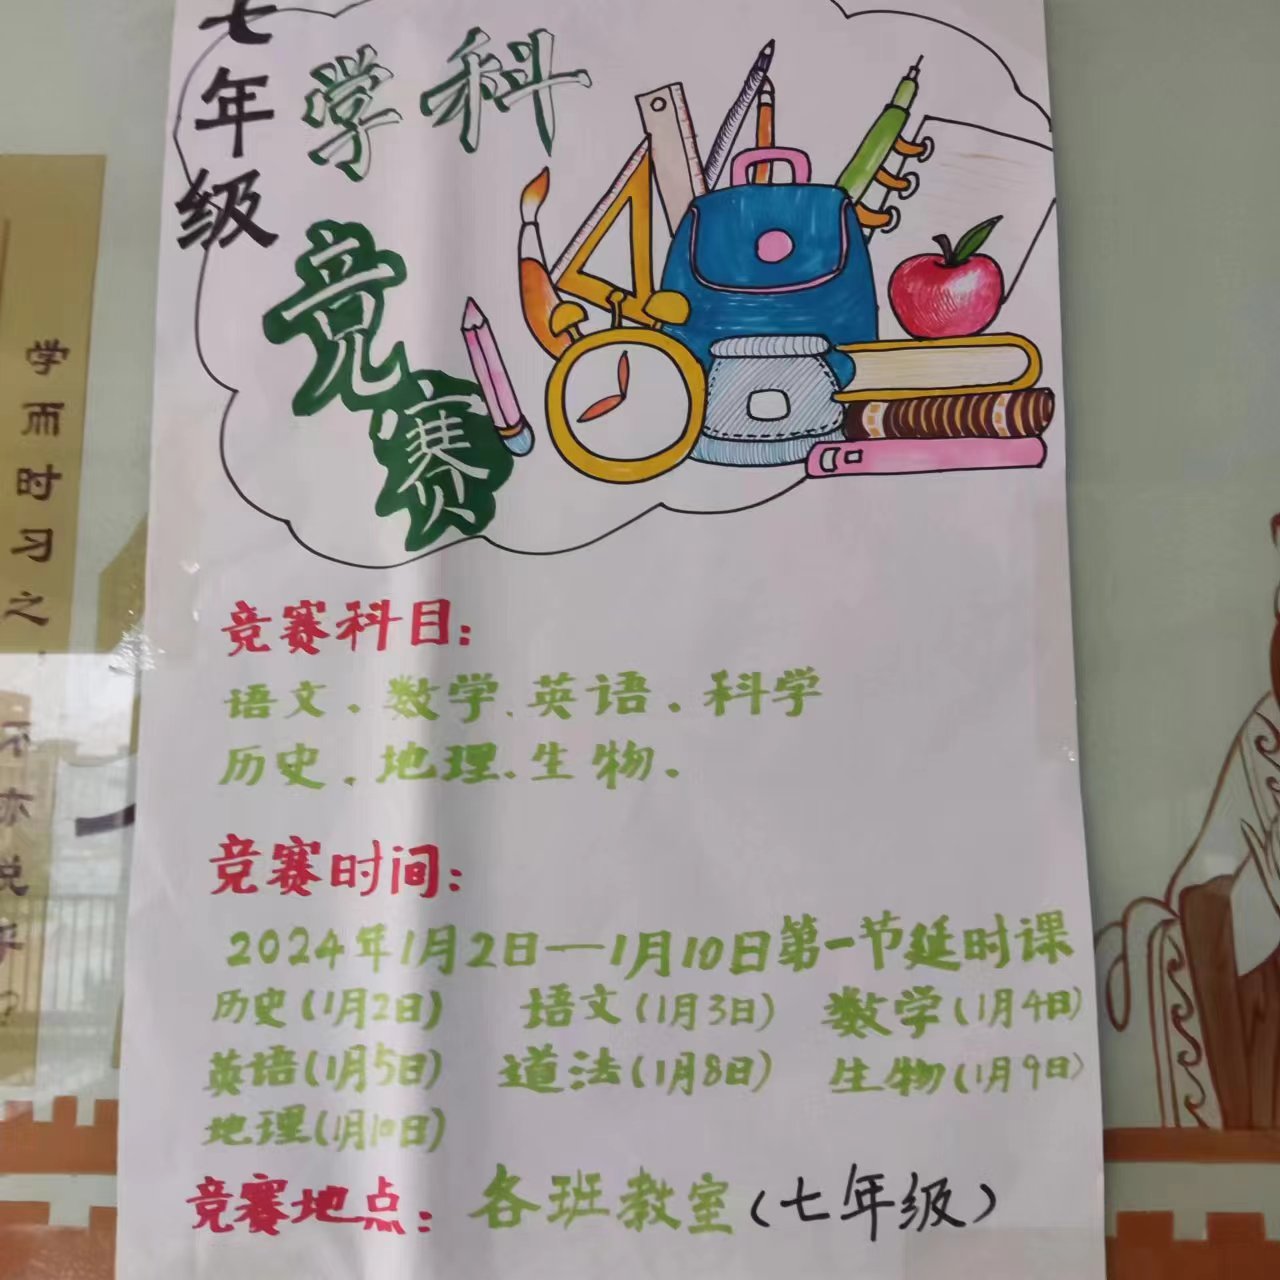 七年级
学科
竞赛
竞赛科目：
语文、数学、英语、科学
历史、地理、生物.
竞赛时间：
2024年1月2日—1月10日第一节延时课
历史(1月2日) 语文(1月3日) 数学(1月4日)
英语(1月5日) 道法(1月8日) 生物(1月9日)
地理(1月10日)
竞赛地点：各班教室(七年级)
学而时习之，
不亦说乎？